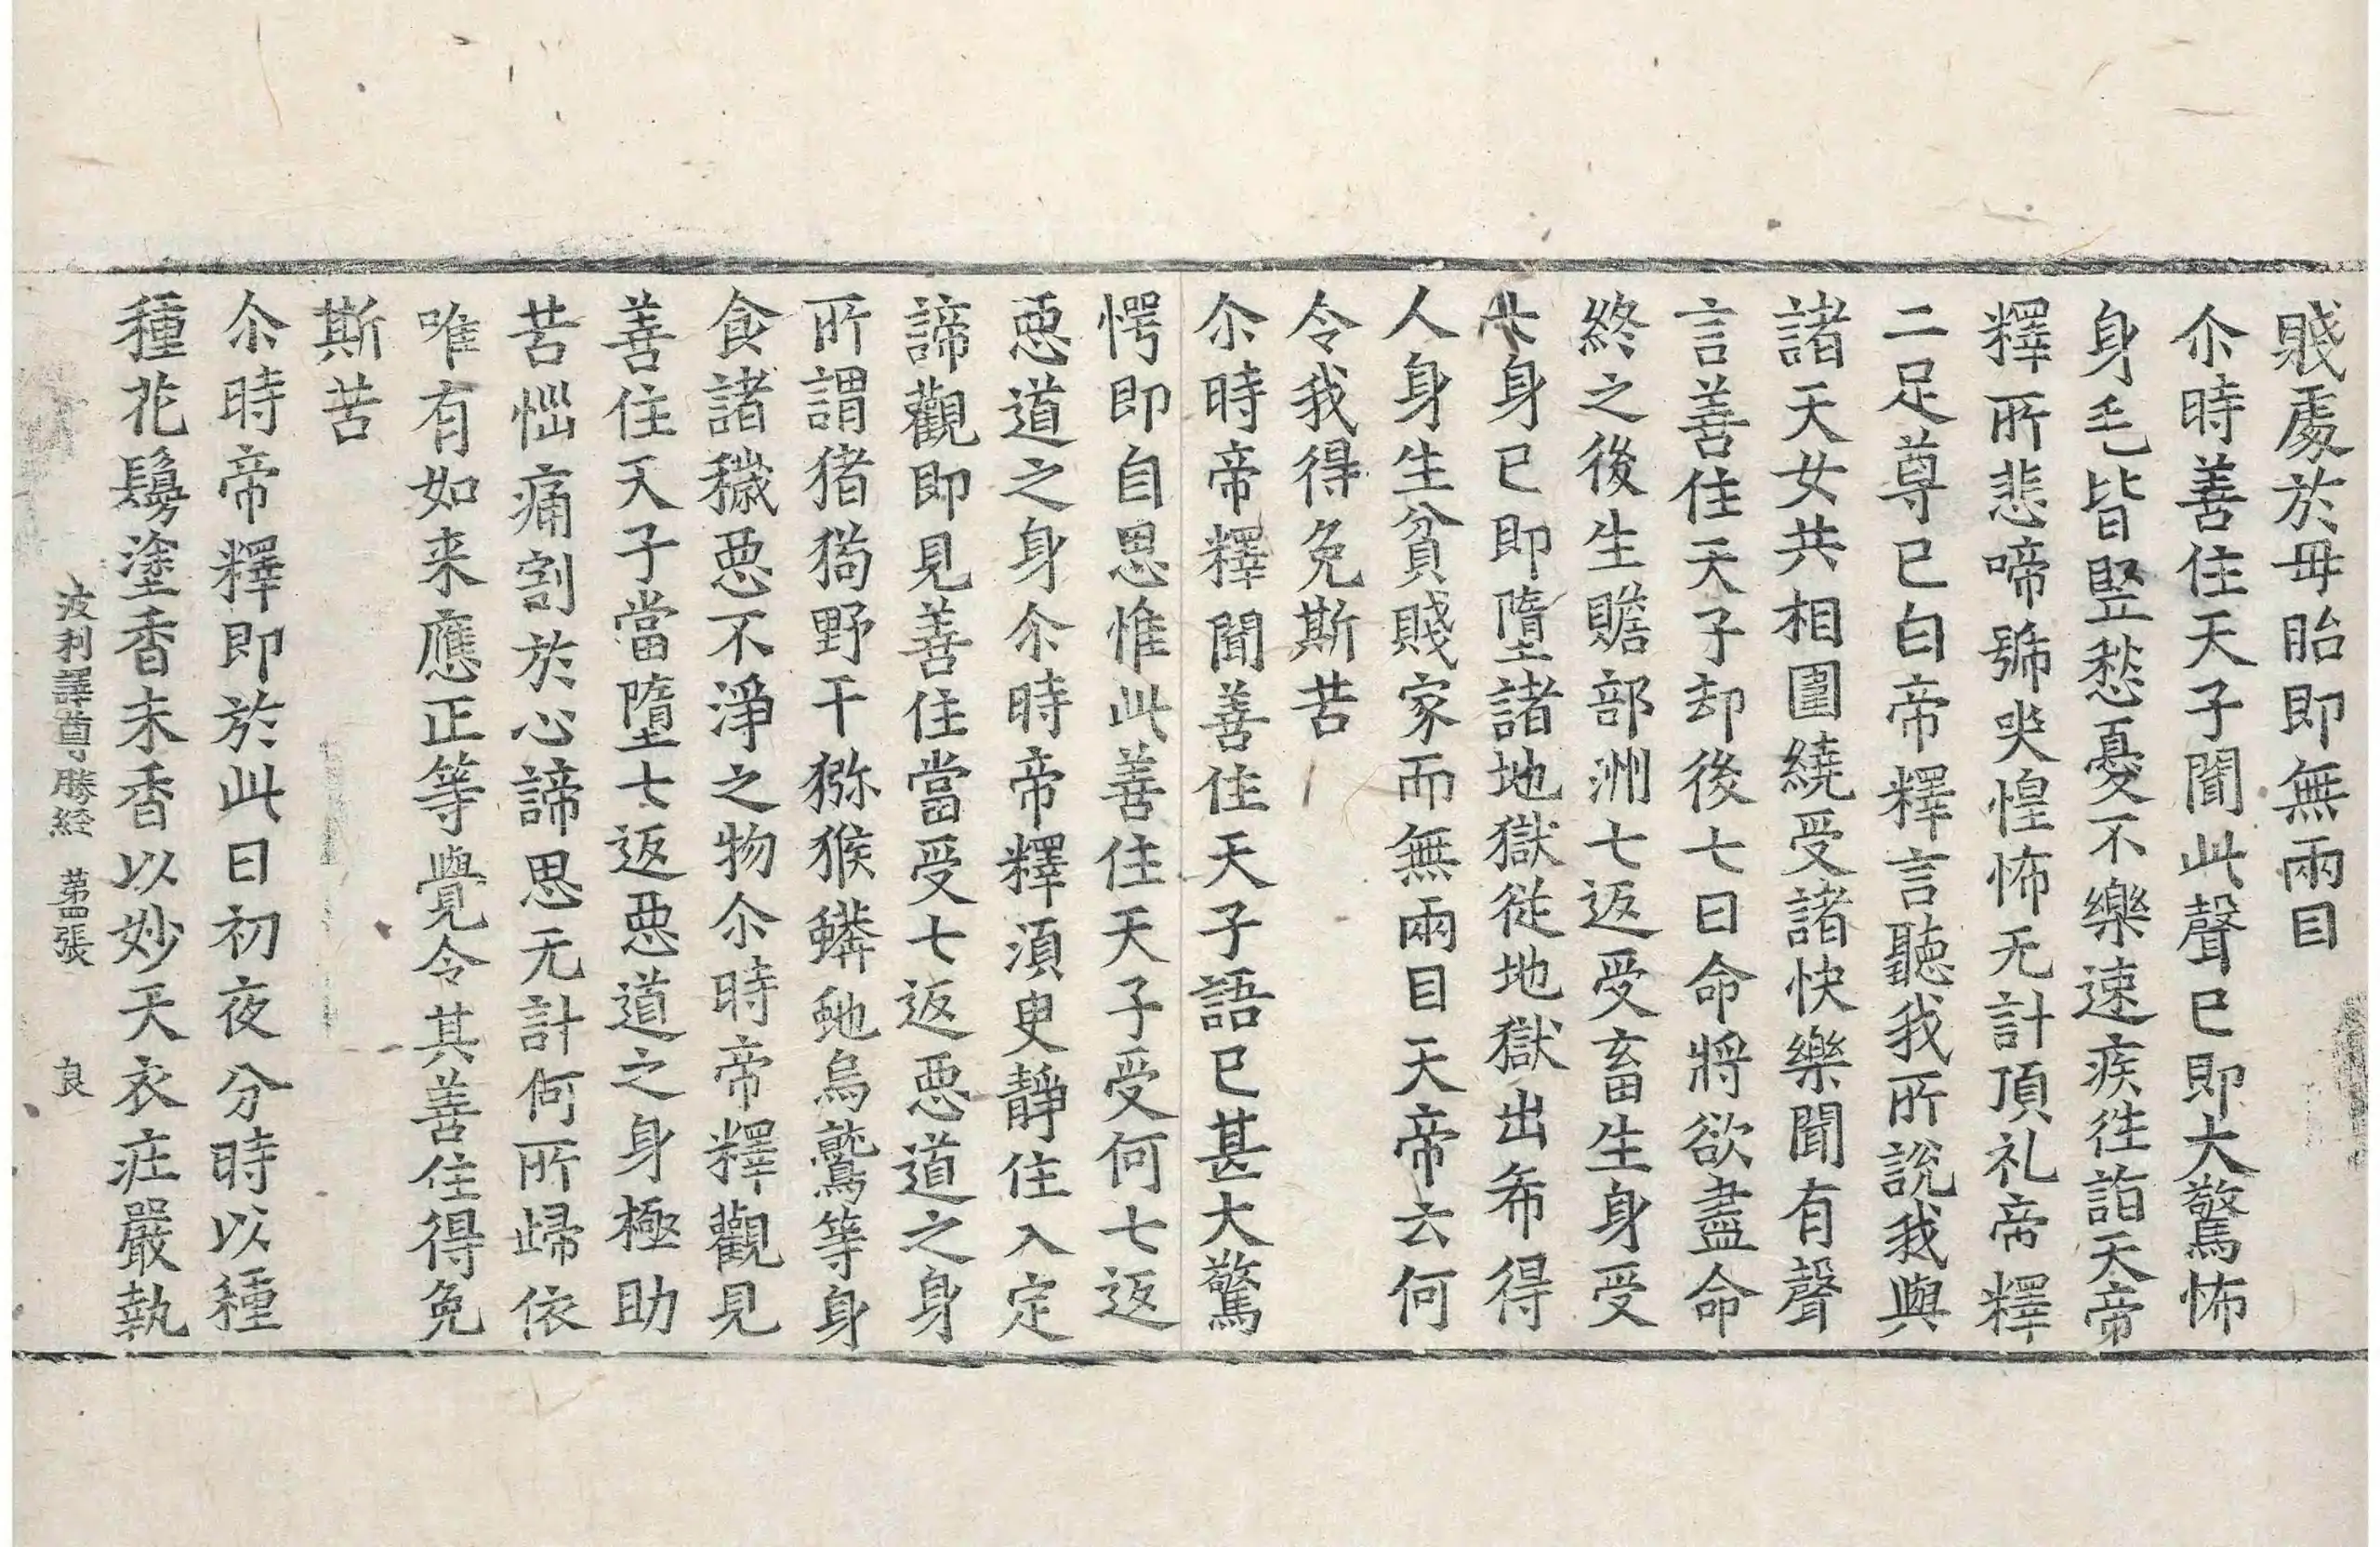 賤處於母胎即無兩目
尒時善住天子聞此聲已即大驚怖
身毛皆竪愁憂不樂速疾往詣天帝
釋所悲啼號哭惶怖无計頂礼帝釋
二足尊已白帝釋言聽我所說我與
諸天女共相圍繞受諸快樂聞有聲
言善住天子却後七日命將欲盡命
終之後生贍部洲七返受畜生身受
七身已即墮諸地獄從地獄出希得
人身生貧賤家而無兩目天帝云何
令我得免斯苦
尒時帝釋聞善住天子語已甚大驚
愕即自思惟此善住天子受何七返
惡道之身尒時帝釋須臾靜住入定
諦觀即見善住當受七返惡道之身
所謂猪狗野干獼猴蟒虵烏鷲等身
食諸穢惡不淨之物尒時帝釋觀見
善住天子當墮七返惡道之身極助
苦惱痛割於心諦思无計何所歸依
唯有如来應正等覺令其善住得免
斯苦
尒時帝釋即於此日初夜分時以種
種花鬘塗香末香以妙天衣庄嚴執
波利譯尊勝經 第四張 良